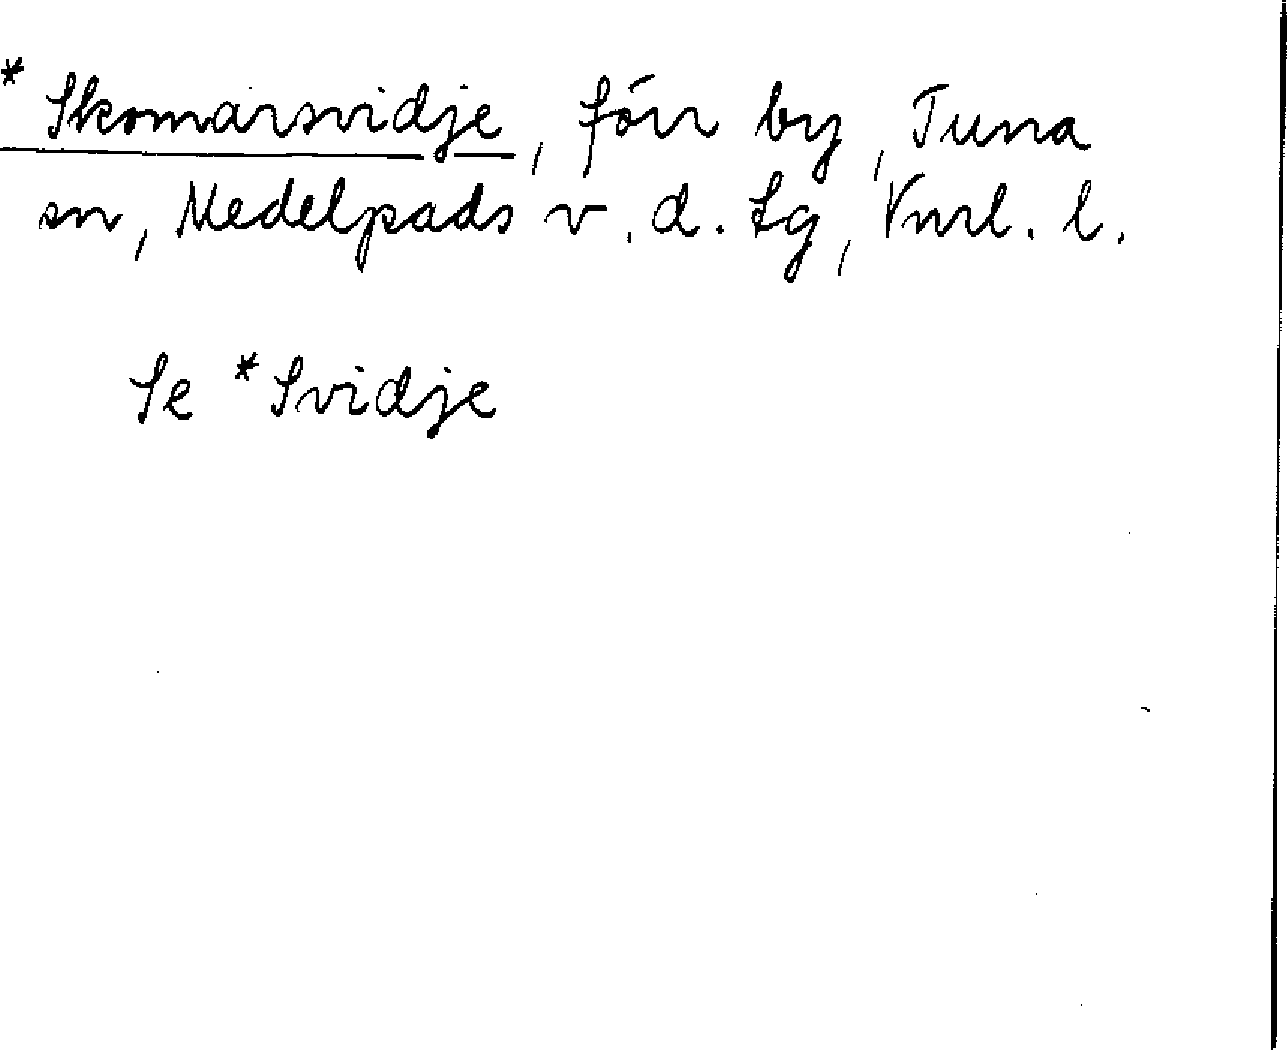 * Skomarsvidje, förr by, Tuna
sn, Medelpads v. d. tg, Vnrl. l.
Se * Svidje